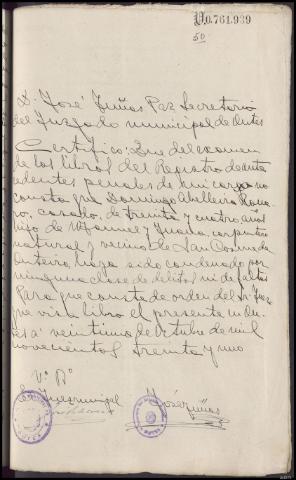 V.0.761.939
50
D. José Tuñas Paz Secretario
del Juzgado municipal de Outes
Certifico: Que del examen
de los libros del Registro de ante
cedentes penales de mi cargo no
consta que Domingo Caballeiro Romero
, casado, de treinta y cuatro años
hijo de Manuel y Juana, carpintero
natural y vecino de San Cosme de
Outeiro, haya sido condenado por
ninguna clase de delitos ni de faltas
Para que conste de orden del Sr. Juez
que visa libro el presente en Ou
tes a veintiuno de octubre de mil
novecientos treinta y uno
Vº Bº
El Juez municipal
José Tuñas